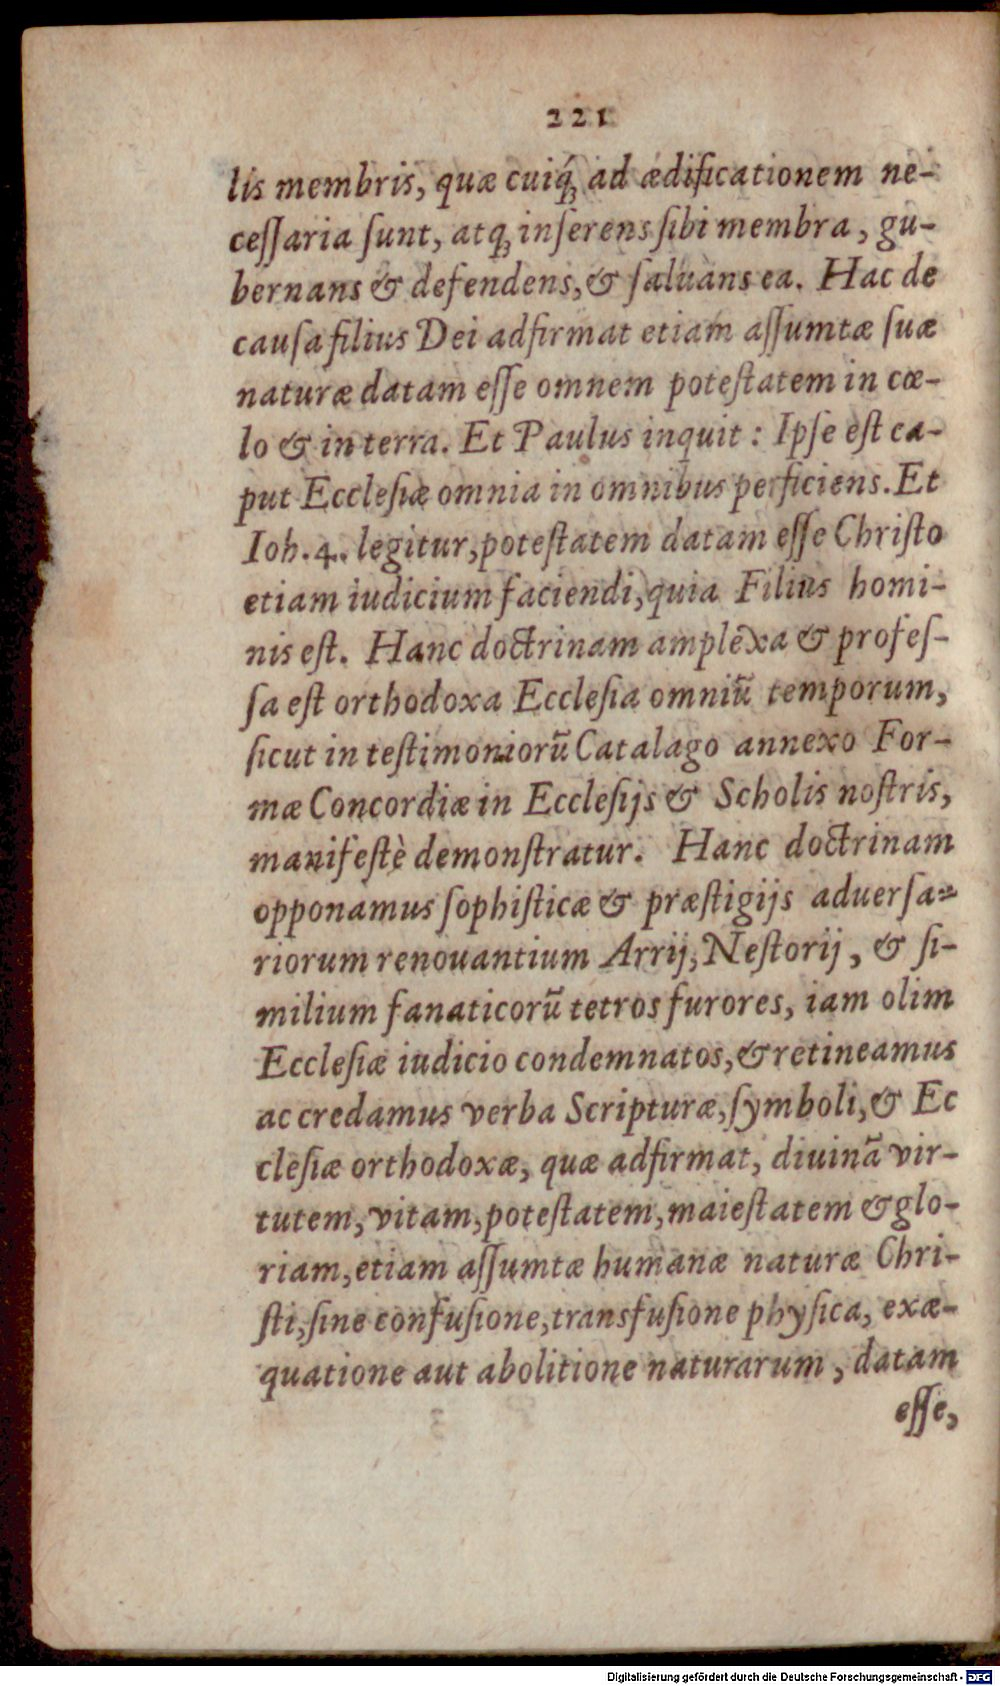 221
lis membris, quæ cuiq́ꝫ ad ædificationem ne-
ceſſaria ſunt, atqꝫ inſerens ſibi membra, gu-
bernans & defendens, & ſaluans ea. Hac de
cauſa filius Dei adfirmat etiam aſſumtæ ſuæ
naturæ datam eſſe omnem poteſtatem in cœ-
lo & in terra. Et Paulus inquit: Ipſe eſt ca-
put Eccleſiæ omnia in omnibus perficiens. Et
Ioh. 4. legitur, poteſtatem datam eſſe Chriſto
etiam iudicium faciendi, quia Filius homi-
nis eſt. Hanc doctrinam amplexa & profeſ-
ſa eſt orthodoxa Eccleſia omniū temporum,
ſicut in teſtimoniorū Catalago annexo For-
mæ Concordiæ in Eccleſijs & Scholis noſtris,
manifeſtè demonſtratur. Hanc doctrinam
opponamus ſophiſticæ & præſtigijs aduerſa-
riorum renouantium Arrij, Neſtorij, & ſi-
milium fanaticorū tetros furores, iam olim
Eccleſiæ iudicio condemnatos, & retineamus
ac credamus verba Scripturæ, ſymboli, & Ec
cleſiæ orthodoxæ, quæ adfirmat, diuinā vir-
tutem, vitam, poteſtatem, maieſtatem & glo-
riam, etiam aſſumtæ humanæ naturæ Chri-
ſti, ſine confuſione, transfuſione phyſica, exæ-
quatione aut abolitione naturarum, datam
eſſe,
Digitalisierung gefördert durch die Deutsche Forschungsgemeinschaft - DFG